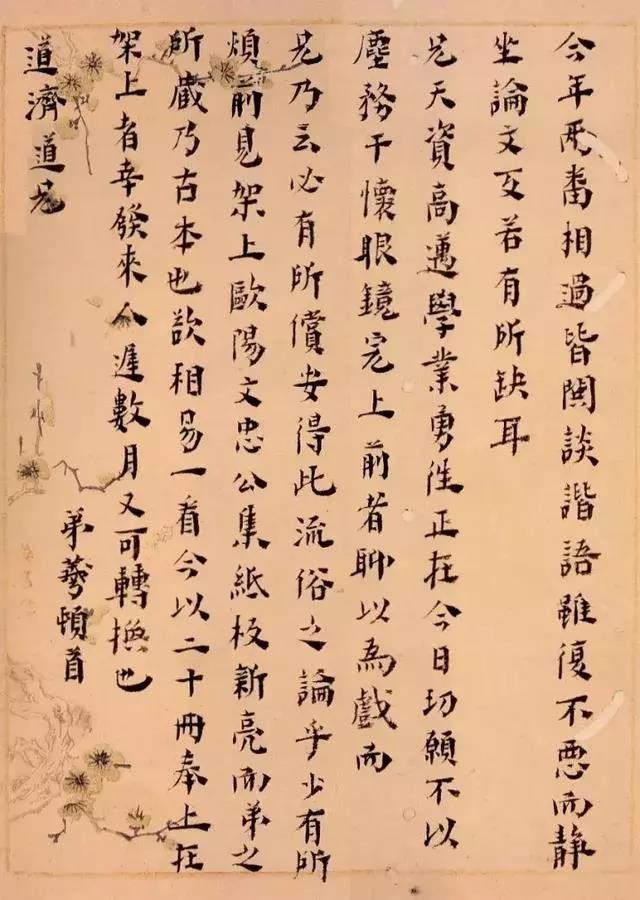 今年两番相過皆闊談諧語雖復不惡而静
坐論文反若有所缺耳
兄天資高邁學業勇往正在今日切願不以
塵務干懷眼鏡完上前者聊以為戲而
兄乃云必有所償安得此流俗之論乎少有所
煩前見架上歐陽文忠公集紙板新亮而弟之
所藏乃古本也欲相易一看今以二十冊奉上在
架上者幸發來人遲數月又可轉換也
弟頓首
道濟道兄